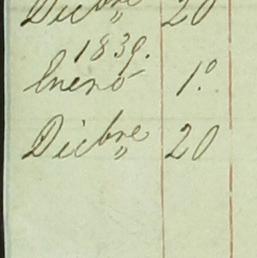 Dicbre „ 20
1839.
Enero 1.º
Dicbre „ 20